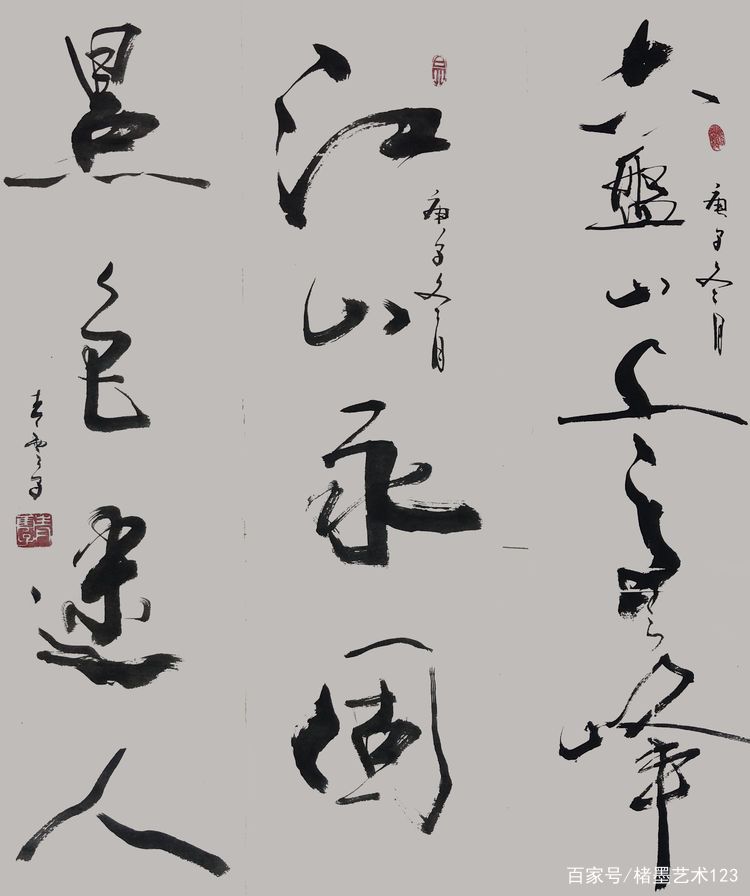 庚子冬月
六盤山上高峰
庚子冬月
江山永固
景色迷人
百家号/楮墨艺术123